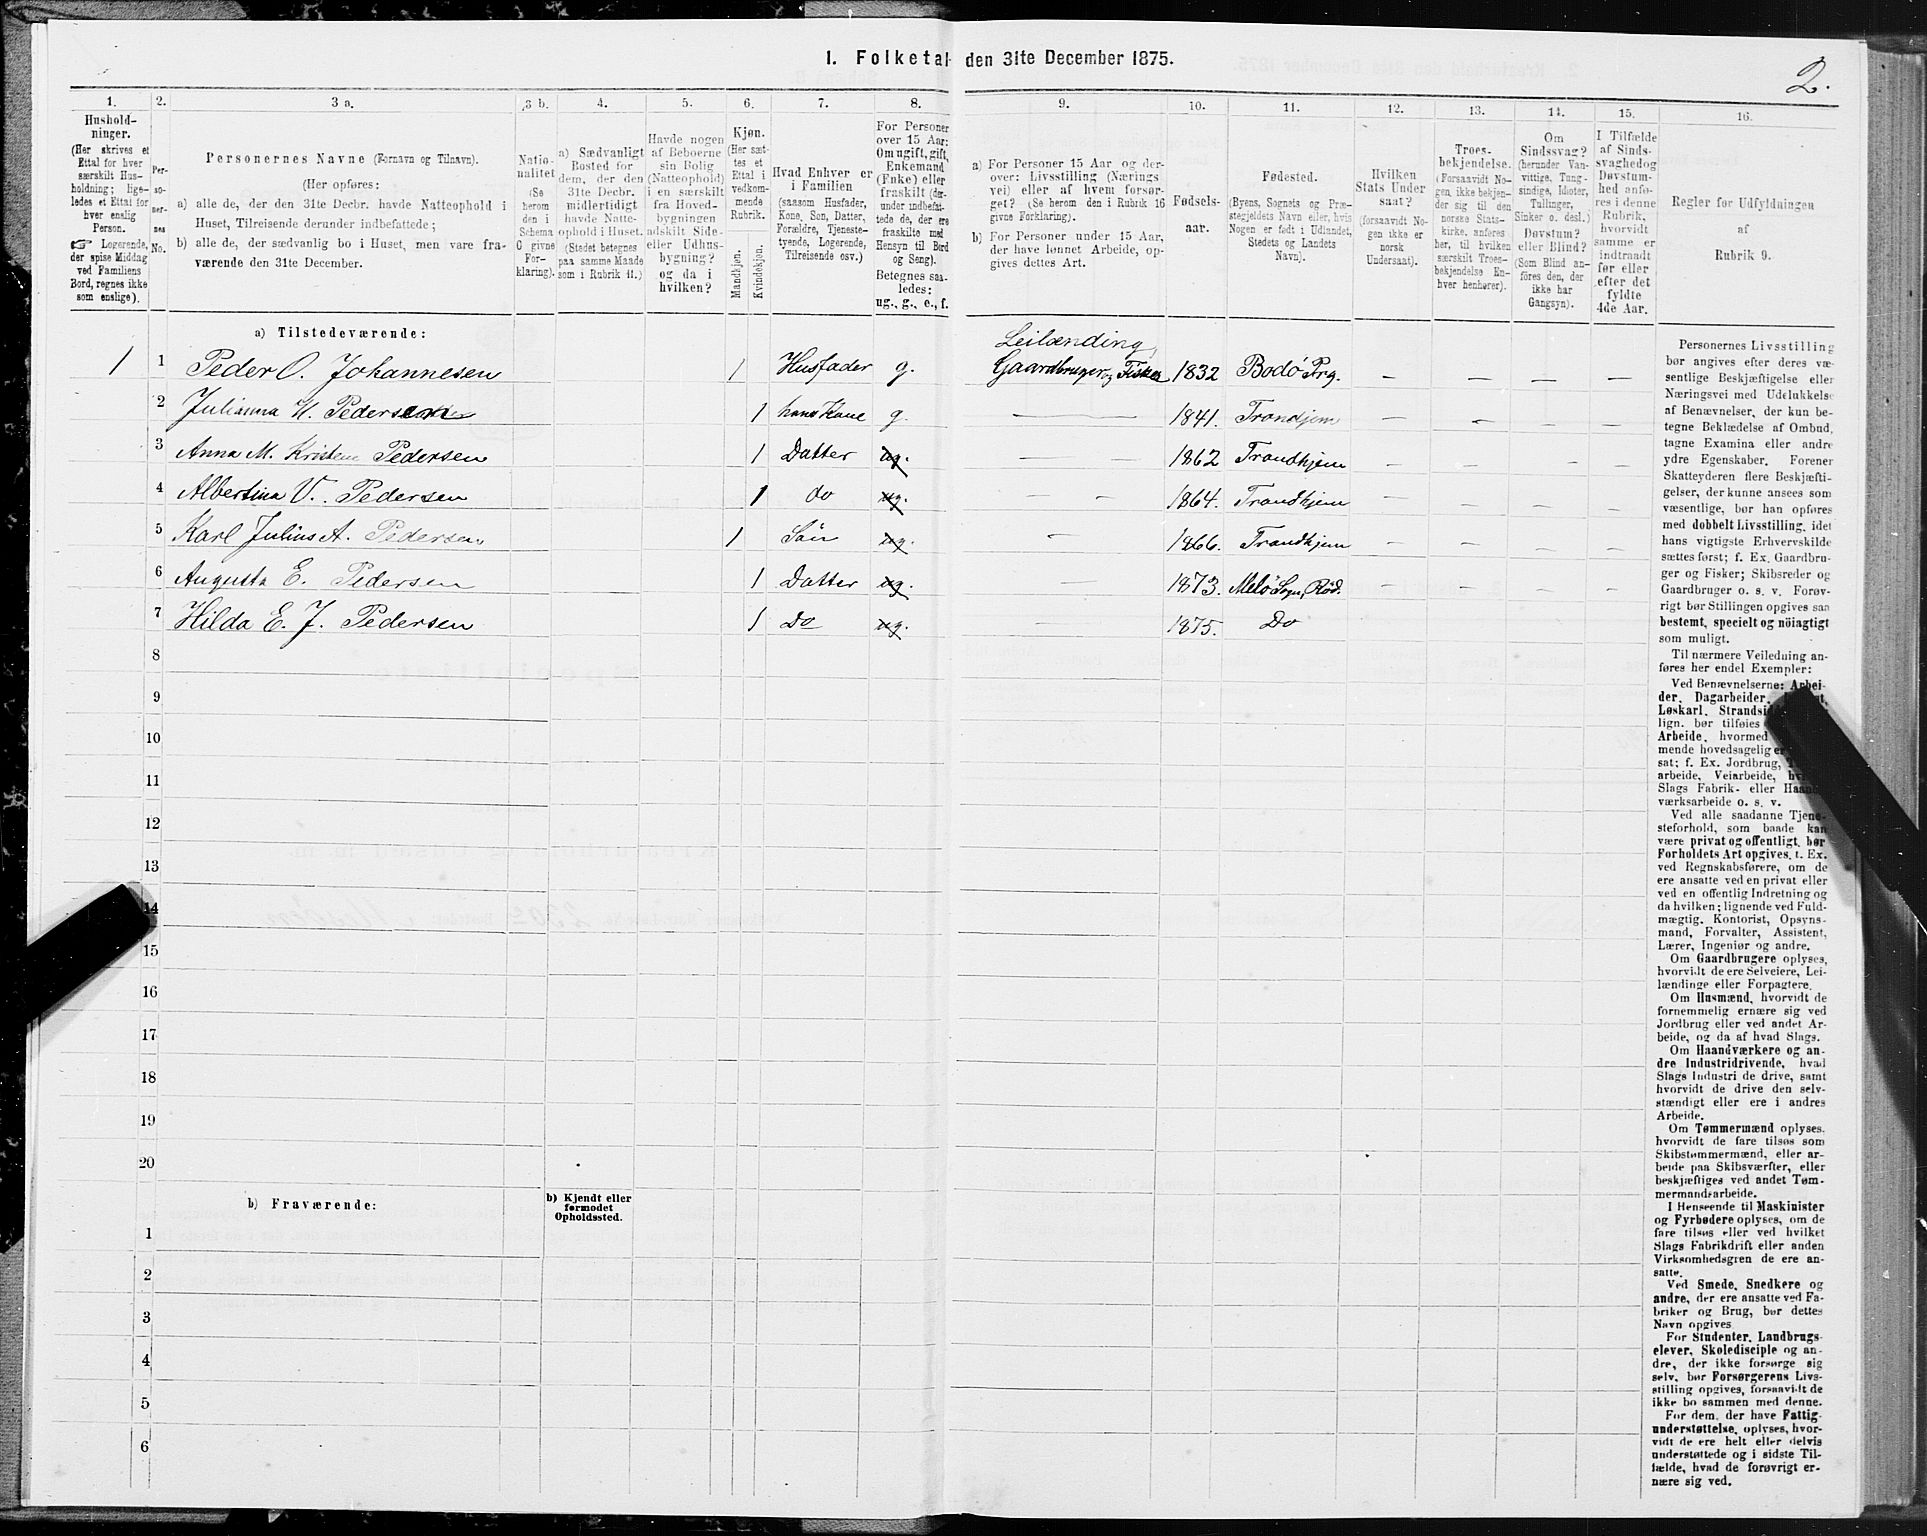 1. Folketal den 31te December 1875.
2.
1.
Hushold-
ninger.
(Her skrives et
Ettal for hver
særskilt Hus-
holdning; lige-
ledes et Ettal for
hver enslig
Person.
☞ Logerende,
der spise Middag
ved Familiens
Bord, regnes ikke
som enslige).
2.
Per-
so-
ner-
nes
No.
3 a.
Personernes Navne (Fornavn og Tilnavn).
(Her opføres:
a) alle de, der den 31te Decbr. havde Natteophold i
Huset, Tilreisende derunder indbefattede;
b) alle de, der sædvanlig bo i Huset, men vare fra-
værende den 31te December.
3 b.
Natio-
nalitet
(Se
herom
den i
Schema
C givne
For-
klaring).
4.
a) Sædvanligt
Bosted for
dem, der den
31te Decbr.
midlertidigt
havde Natte-
ophold i Huset.
(Stedet betegnes
paa samme Maade
som i Rubrik 11.)
5.
Havde nogen
af Beboerne
sin Bolig
(Natteophold)
i en særskilt
fra Hoved-
bygningen
adskilt Side-
eller Udhus-
bygning?
og da i
hvilken?
6.
Kjøn.
(Her sæt-
tes et
Ettal i
vedkom-
mende
Rubrik.
Mandkjøn.
Kvindekjøn.
7.
Hvad Enhver er
i Familien
(saasom Husfader,
Kone, Søn, Datter,
Forældre, Tjeneste-
tyende, Logerende,
Tilreisende osv.)
8.
For Personer
over 15 Aar:
Om ugift, gift,
Enkemand
(Enke) eller
fraskilt (der-
under indbefat-
tede de, der ere
fraskilte med
Hensyn til Bord
og Seng).
Betegnes saa-
ledes:
ug., g., e., f.
9.
a) For Personer 15 Aar og der-
over: Livsstilling (Nærings-
vei) eller af hvem forsør-
get? (Se herom den i Rubrik 16
givne Forklaring).
b) For Personer under 15 Aar,
der have lønnet Arbeide, op-
gives dettes Art.
10.
Fødsels-
aar.
11.
Fødested.
(Byens, Sognets og Præ-
stegjeldets Navn eller, hvis
Nogen er født i Udlandet,
Stedets og Landets
Navn).
12.
Hvilken
Stats Under
saat?
(forsaavidt No-
gen ikke er
norsk
Undersaat).
13.
Troes-
bekjendelse.
(Forsaavidt No-
gen ikke bekjen-
der sig til den
norske Stats-
kirke, anføres
her, til hvilken
særskilt Troes-
bekjendelse En-
hver henhører).
14.
Om
Sindssvag?
(herunder Van-
vittige, Tung-
sindige, Idioter,
Tullinger,
Sinker o. desl.)
Døvstum?
eller Blind?
(Som Blind an-
føres den, der
ikke har
Gangsyn).
15.
I Tilfælde
af Sinds-
svaghed og
Døvstum-
hed anfø-
res i denne
Rubrik,
hvorvidt
samme er
indtraadt
før eller
efter det
fyldte
4de Aar.
16.
Regler før Udfyldningen
af
Rubrik 9.
a) Tilstedeværende:
Leilænding,
1 1 Peder O. Johannesen 1 Husfader g. Gaardbruger og Fisker 1832 Bodö Prg. — — — —
2 Julianna M. Pedersen 1 hans Kone g. — 1841. Trondhjem — — — —
3 Anna M. Kristine Pedersen 1 Datter ug. — — 1862 Trondhjem — — — —
4 Albertina V. Pedersen 1 do ug. — — 1864. Trondhjem — — — —
5 Karl Julius A. Pedersen 1 Sön ug. — 1866. Trondhjem — — — —
6 Augusta E. Pedersen 1 Datter ug. — 1873. Melö Sogn, Röd. — — — —
7 Hilda E. J. Pedersen 1 Do ug. — 1875. Do — — — —
8
9
10
11
12
13
14
15
16
17
18
19
20
b) Fraværende:
b) Kjendt eller
formodet
Opholdssted.
1
2
3
4
5
6
Personernes Livsstilling
bør angives efter deres væ-
sentlige Beskjæftigelse eller
Næringsvei med Udelukkelse
af Benævnelser, der kun be-
tegne Beklædelse af Ombud,
tagne Examina eller andre
ydre Egenskaber. Forener
Skatteyderen flere Beskjæfti-
gelser, der kunne ansees som
væsentlige, bør han opføres
med dobbelt Livsstilling, idet
hans vigtigste Erhvervskilde
sættes først; f. Ex. Gaardbru-
ger og Fisker; Skibsreder og
Gaardbruger o. s. v. Forøv-
rigt bør Stillingen opgives saa
bestemt, specielt og nöiagtigt
som muligt.
Til nærmere Veiledning an-
føres her endel Exempler:
Ved Benævnelserne: Arbei-
der, Dagarbeider,
Løskarl, Strandsid
lign. bør tilføies
Arbeide, hvormed
mende hovedsagelig er
sat; f. Ex. Jordbrug,
arbeide, Veiarbeide,
Slags Fabrik- eller Haand-
værksarbeide o. s. v.
Ved alle saadanne Tjene-
steforhold, som baade kan
være privat og offentligt, bør
Forholdets Art opgives, t. Ex.
ved Regnskabsførere, om de
ere ansatte ved en privat eller
ved en offentlig Indretning og
da hvilken; lignende ved Fuld-
mægtig, Kontorist, Opsyns-
mand, Forvalter, Assistent,
Lærer, Ingeniør og andre.
Om Gaardbrugere oplyses,
hvorvidt de ere Selveiere, Lei-
lændinge eller Forpagtere.
Om Husmænd, hvorvidt de
fornemmelig ernære sig ved
Jordbrug eller ved andet Ar-
beide, og da af hvad Slags.
Om Haandværkere og an-
dre Industridrivende, hvad
Slags Industri de drive, samt
hvorvidt de drive den selv-
stændigt eller ere i andres
Arbeide.
Om Tømmermænd oplyses,
hvorvidt de fare tilsøs som
Skibstømmermænd, eller ar-
beide paa Skibsværfter, eller
beskjæftiges ved andet Tøm-
mermandsarbeide.
I Henseende til Maskinister
og Fyrbødere oplyses, om de
fare tilsøs eller ved hvilket
Slags Fabrikdrift eller anden
Virksomhedsgren de ere an-
satte.
Ved Smede, Snedkere og
andre, der ere ansatte ved Fa-
briker og Brug, bør dettes
Navn opgives.
For Studenter, Landbrugs-
elever, Skoledisciple og an-
dre, der ikke forsørge sig
selv, bør Forsørgerens Livs-
stilling opgives, forsaavidt de
ikke bo sammen med denne.
For dem, der have Fattig-
understøttelse, oplyses, hvor-
vidt de ere helt eller delvis
understøttede og i sidste Til-
fælde, hvad de forøvrigt er-
nære sig ved.